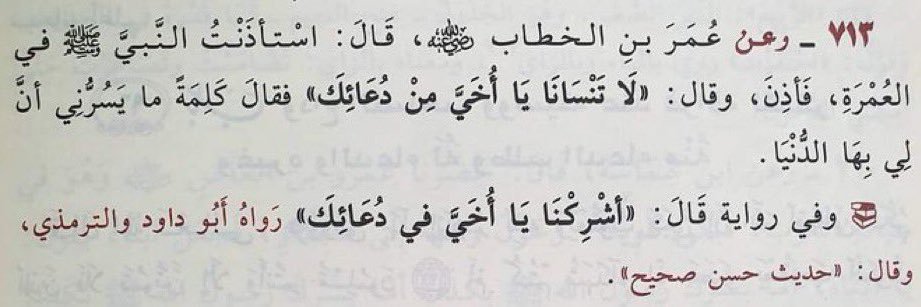 ٧١٣ ـ وعن عُمَرَ بنِ الخطاب رضي الله عنه، قَالَ: اسْتأذَنْتُ النَّبيَّ ﷺ في
العُمْرَةِ، فَأذِنَ، وقال: «لَا تَنْسَانَا يَا أُخَيَّ مِنْ دُعَائِكَ» فقالَ كَلِمَةً ما يَسُرُّنِي أنَّ
لِي بِهَا الدُّنْيَا.
وفي رواية قَالَ: «أشْرِكْنَا يَا أُخَيَّ في دُعَائِكَ» رَواهُ أَبُو داود والترمذي،
وقال: «حديث حسن صحيح».